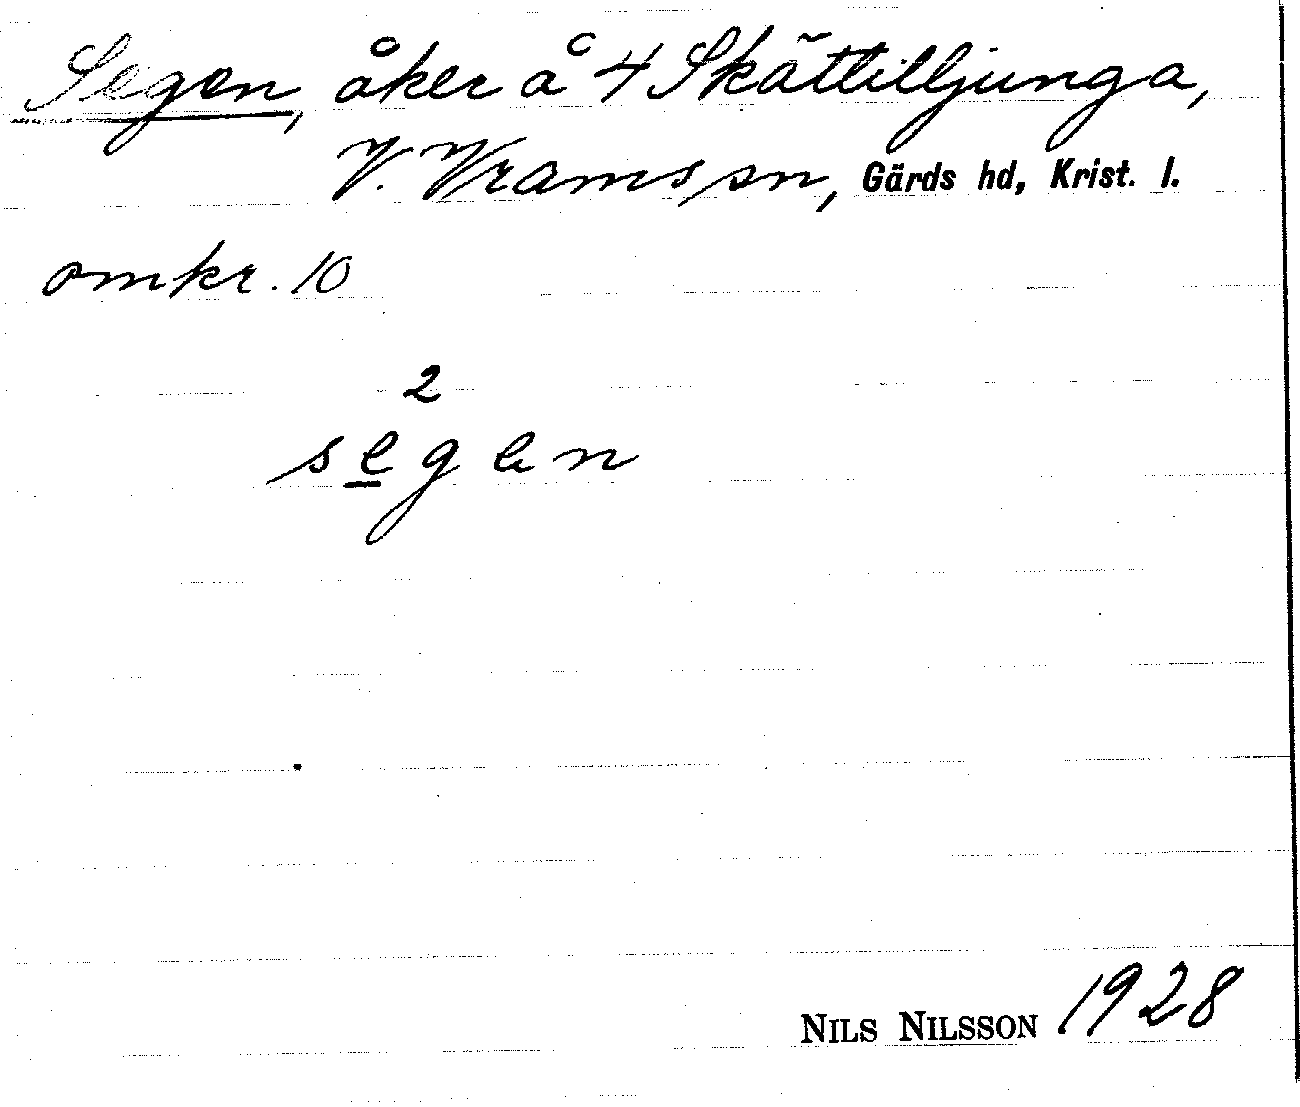 Segen, åker å 4 Skättilljunga,
V. Vrams sn, Gärds hd, Krist. l.
omkr. 10
2
segen
NILS NILSSON 1928